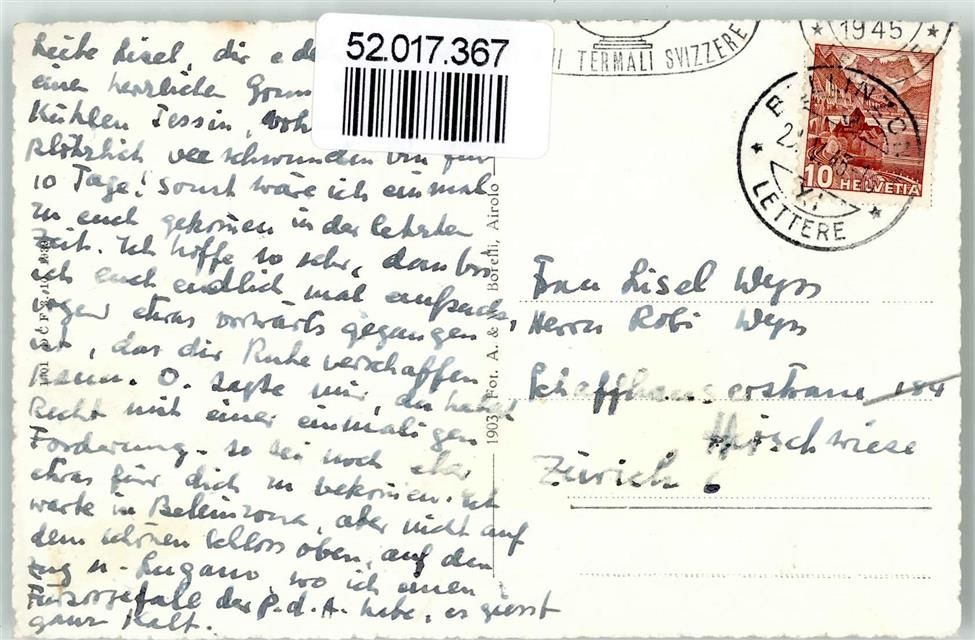 Liebe Lisel, dir e
einen herzlichen
Kühlen Tessin, woh
plötzlich verschwunden bin für
10 Tage! Sonst wäre ich einmal
zu euch gekomen in der letzten
Zeit. Ich hoffe so sehr, dan
ich euch endlich mal
etwas vorwärts gegangen
ist, das dir Ruhe verschaffen
kann. O. sagte mir, du habest
Recht mit einer einmaligen
Forderung. so sei noch eher
etwas für dich zu bekomen. Ich
warte in Belinzona, aber nicht auf
dem schönen Schloss oben, auf den
Zug n. Lugano, wo ich einen
Fürsorgefall der P.d.A. habe, es giesst
ganz kalt.
52.017.367
1903 Fot. A. & Borelli, Airolo
TERMALI SVIZZERE
1945
LETTERE
10 HELVETIA
Frau Lisel Wyss
Herrn Robi Wyss
Schaffhauserstrasse 184
Hirschwiese
Zürich 6